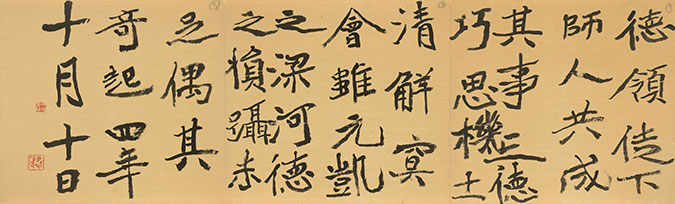 德領徒下
師人共成
其事三德
巧思機土
清解冥
會雖元凱
之梁河德
之損躡未
足偶其
奇起四年
十月十日